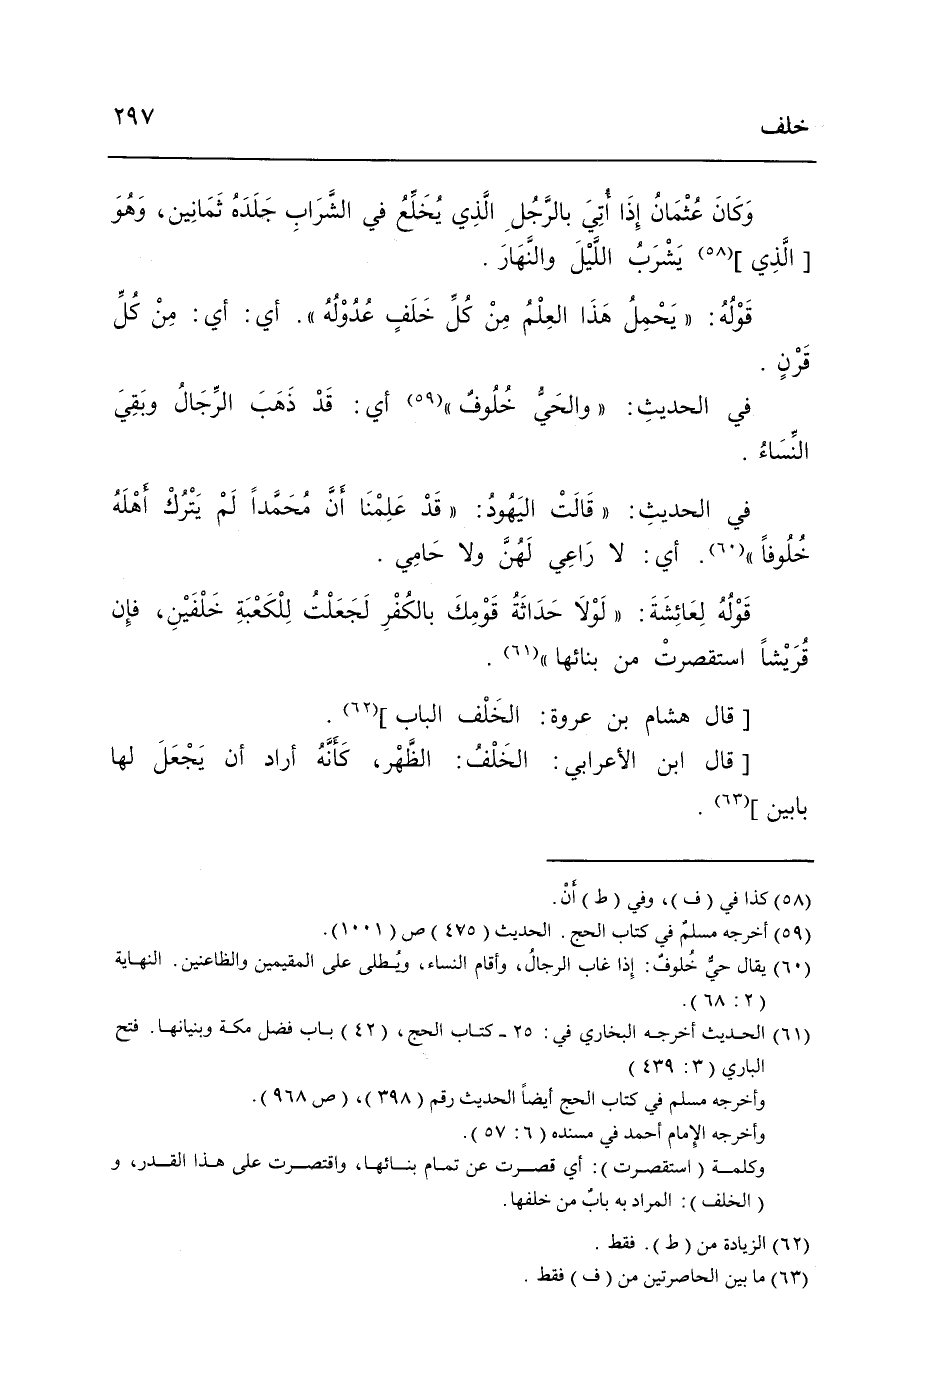 خلف
٢٩٧
وَكَانَ عُثْمَانُ إِذَا أُتِيَ بالرَّجُلِ الَّذِي يُخَلِّعُ في الشَّرَابِ جَلَدَهُ ثَمَانِين، وَهُوَ
[ الَّذِي ](٥٨) يَشْرَبُ اللَّيْلَ والنَّهَارَ .
قَوْلُهُ: « يَحْمِلُ هَذَا العِلْمُ مِنْ كُلِّ خَلَفٍ عُدُوْلُهُ ». أي: أي: مِنْ كُلِّ
قَرْنٍ .
في الحديثِ: « والحَيُّ خُلُوفٌ »(٥٩) أي: قَدْ ذَهَبَ الرِّجَالُ وبَقِيَ
النِّسَاءُ .
في الحديثِ: « قَالَتْ اليَهُودُ: « قَدْ عَلِمْنَا أَنَّ مُحَمَّداً لَمْ يَتْرُكْ أَهْلَهُ
خُلُوفاً »(٦٠). أي: لا رَاعِي لَهُنَّ ولا حَامِي .
قَوْلُهُ لِعَائِشَةَ: « لَوْلَا حَدَاثَةُ قَوْمِكَ بالكُفْرِ لَجَعَلْتُ لِلْكَعْبَةِ خَلْفَيْنِ، فإن
قُرَيْشاً استقصرتْ من بنائها »(٦١) .
[ قال هشام بن عروة: الخَلْف الباب ](٦٢) .
[ قال ابن الأعرابي: الخَلْفُ: الظَّهْر، كَأَنَّهُ أراد أن يَجْعَلَ لها
بابين ](٦٣) .
(٥٨) كذا في ( ف )، وفي ( ط ) أَنْ.
(٥٩) أخرجه مسلمٌ في كتاب الحج . الحديث ( ٤٧٥ ) ص ( ١٠٠١).
(٦٠) يقال حيٌّ خُلوفٌ: إذا غاب الرجالُ، وأقام النساء، ويُطلى على المقيمين والظاعنين. النهاية
( ٢ : ٦٨ ).
(٦١) الحديث أخرجه البخاري في: ٢٥ ـ كتاب الحج، ( ٤٢ ) باب فضل مكة وبنيانها. فتح
الباري ( ٣: ٤٣٩ )
وأخرجه مسلم في كتاب الحج أيضاً الحديث رقم ( ٣٩٨ )، ( ص ٩٦٨ ).
وأخرجه الإمام أحمد في مسنده ( ٦: ٥٧ ).
وكلمة ( استقصرت ): أي قصرت عن تمام بنائها، واقتصرت على هذا القدر، و
( الخلف ): المراد به بابٌ من خلفها.
(٦٢) الزيادة من ( ط ). فقط .
(٦٣) ما بين الحاصرتين من ( ف ) فقط .